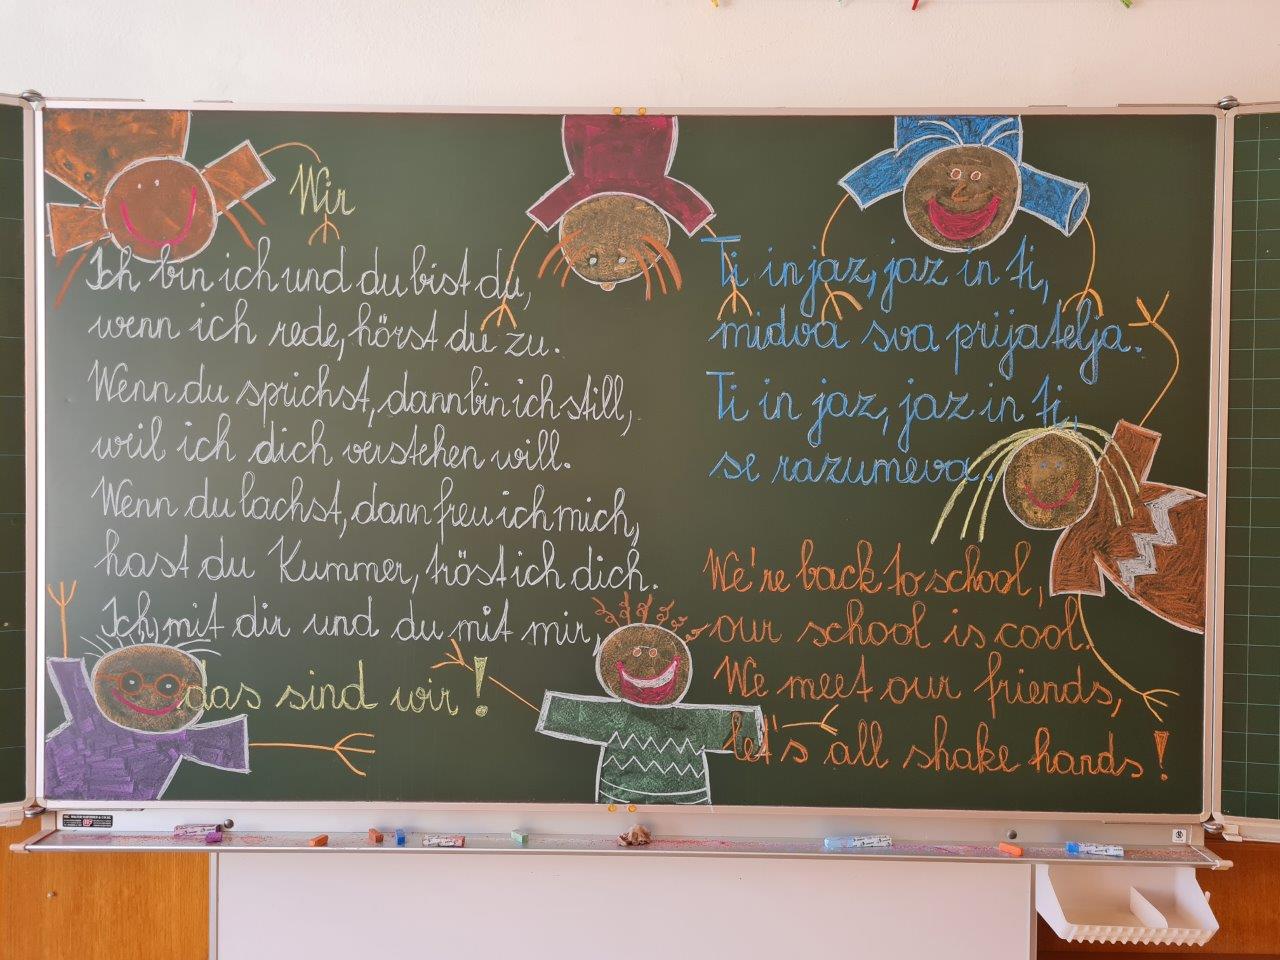 Wir
Ich bin ich und du bist du,
wenn ich rede, hörst du zu.
Wenn du sprichst, dann bin ich still,
weil ich dich verstehen will.
Wenn du lachst, dann freu ich mich,
hast du Kummer, tröst ich dich.
Ich mit dir und du mit mir,
das sind wir!
Ti in jaz, jaz in ti,
midva sva prijatelja.
Ti in jaz, jaz in ti,
se razumeva.
We're back to school,
our school is cool.
We meet our friends,
let's all shake hands!